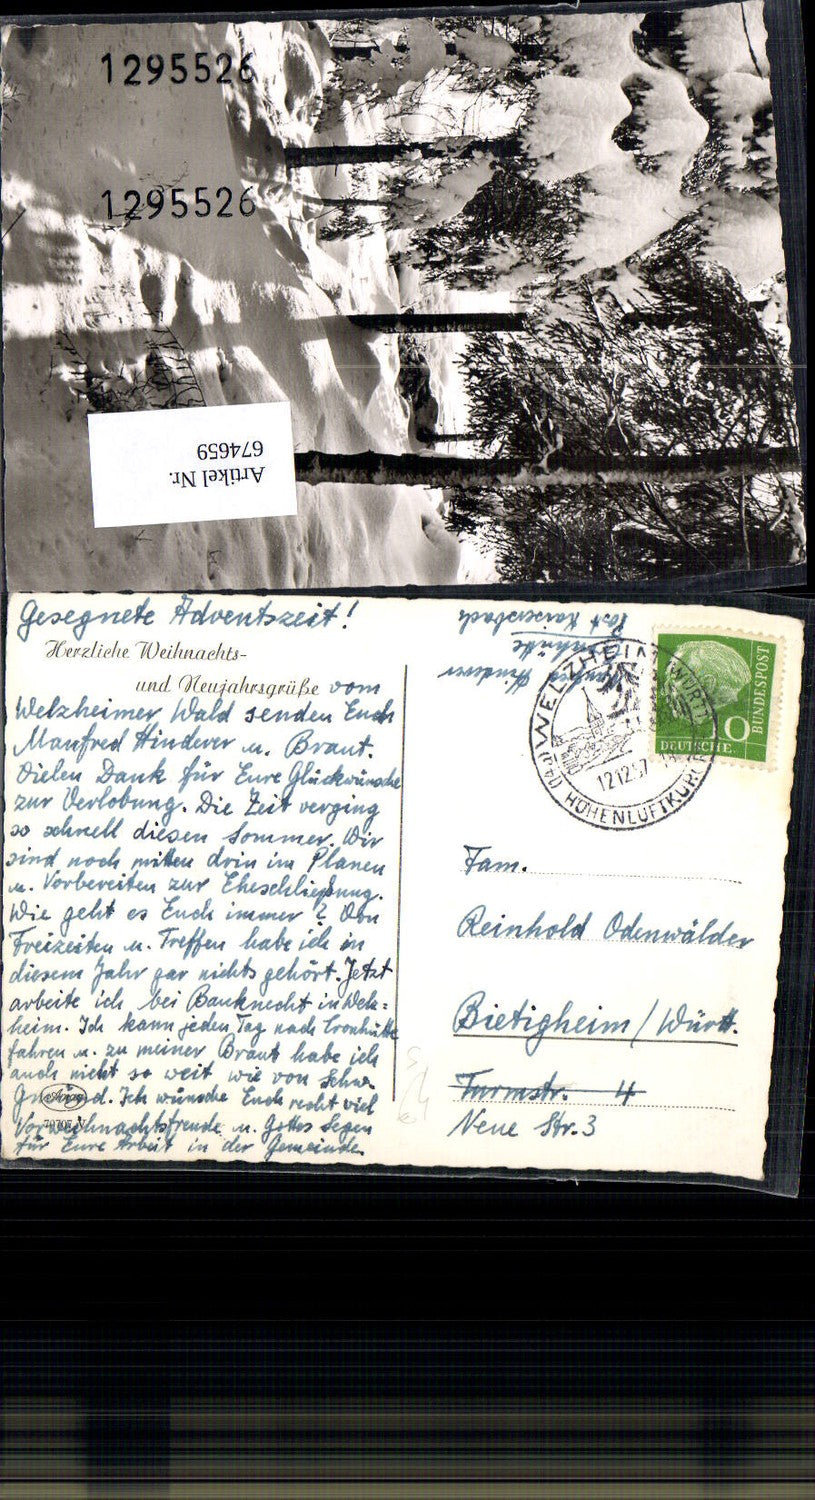 1295526
1295526
Artikel Nr.
674659
Gesegnete Adventszeit!
Herzliche Weihnachts-
und Neujahrsgrüße vom
Welzheimer Wald senden Euch
Manfred Hinderer u. Braut.
Vielen Dank für Eure Glückwünsche
zur Verlobung. Die Zeit verging
so schnell diesen Sommer. Wir
sind noch mitten drin im Planen
u. Vorbereiten zur Eheschließung.
Wie geht es Euch immer? Von
Freizeiten u. Treffen habe ich in
diesem Jahr gar nichts gehört. Jetzt
arbeite ich bei Bauknecht in Welz=
heim. Ich kann jeden Tag nach Cronhütte
fahren u. zu meiner Braut habe ich
auch nicht so weit wie von Schw.
Gmünd. Ich wünsche Euch recht viel
Vorweihnachtsfreude u. Gottes Segen
für Eure Arbeit in der Gemeinde.
Manfred Hinderer
Cronhütte
Post Kaisersbach
(14a) WELZHEIM (WÜRTT)
12.12.57
HÖHENLUFTKURORT
10
DEUTSCHE
BUNDESPOST
Fam.
Reinhold Odenwälder
Bietigheim / Württ.
Turmstr. 4
Neue Str. 3